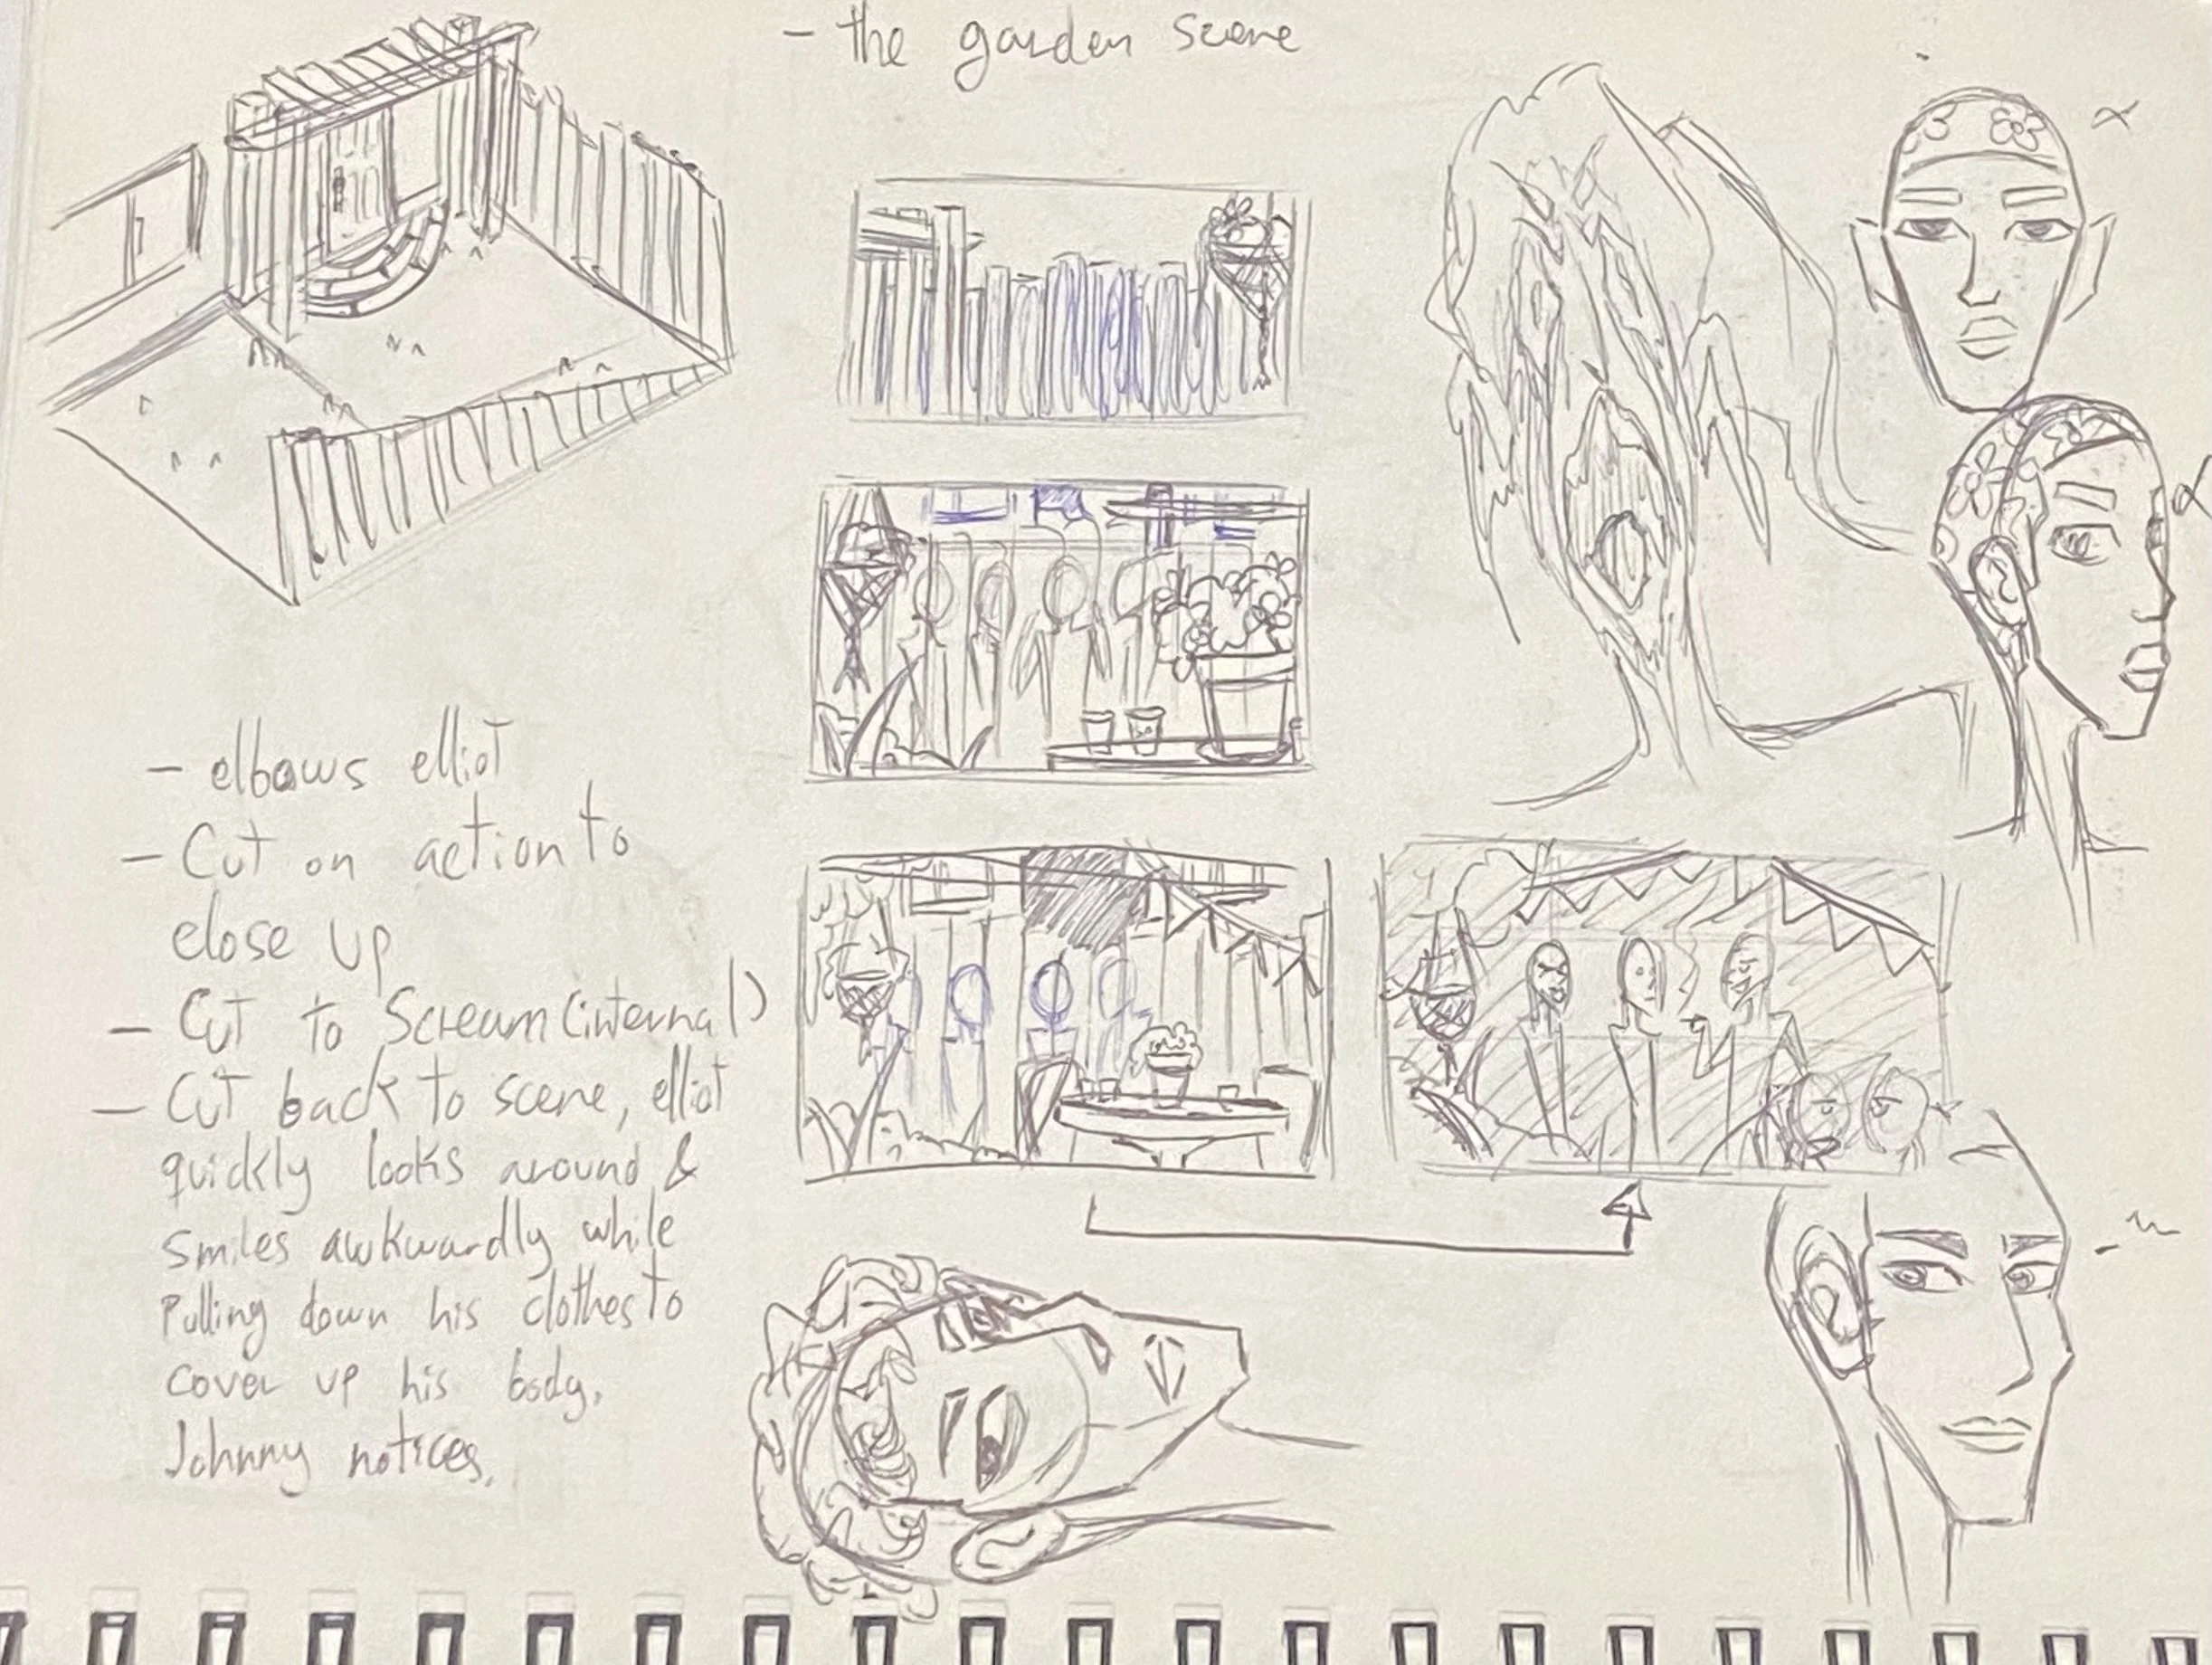 - the garden scene
- elbows elliot
- Cut on action to
close up
- Cut to Scream (internal)
- Cut back to scene, elliot
quickly looks around &
smiles awkwardly while
Pulling down his clothes to
cover up his body.
Johnny notices.